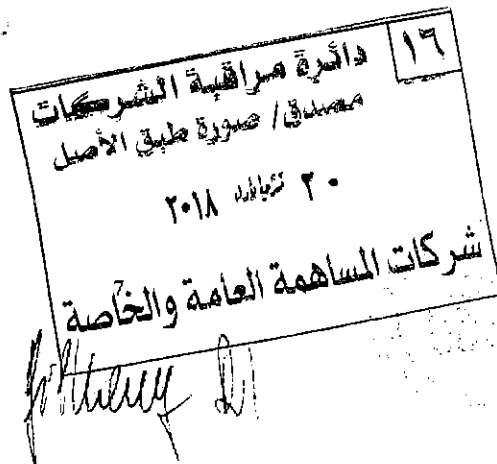 ١٦
دائرة مراقبة الشركات
مصدق / صورة طبق الأصل
٢٠١٨
شركات المساهمة العامة والخاصة